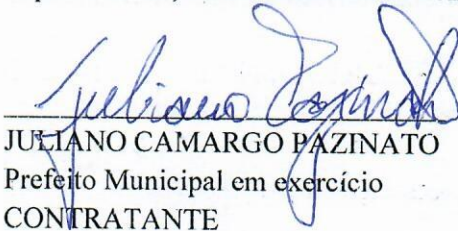 Juliano Pazinato
JULIANO CAMARGO PAZINATO
Prefeito Municipal em exercício
CONTRATANTE